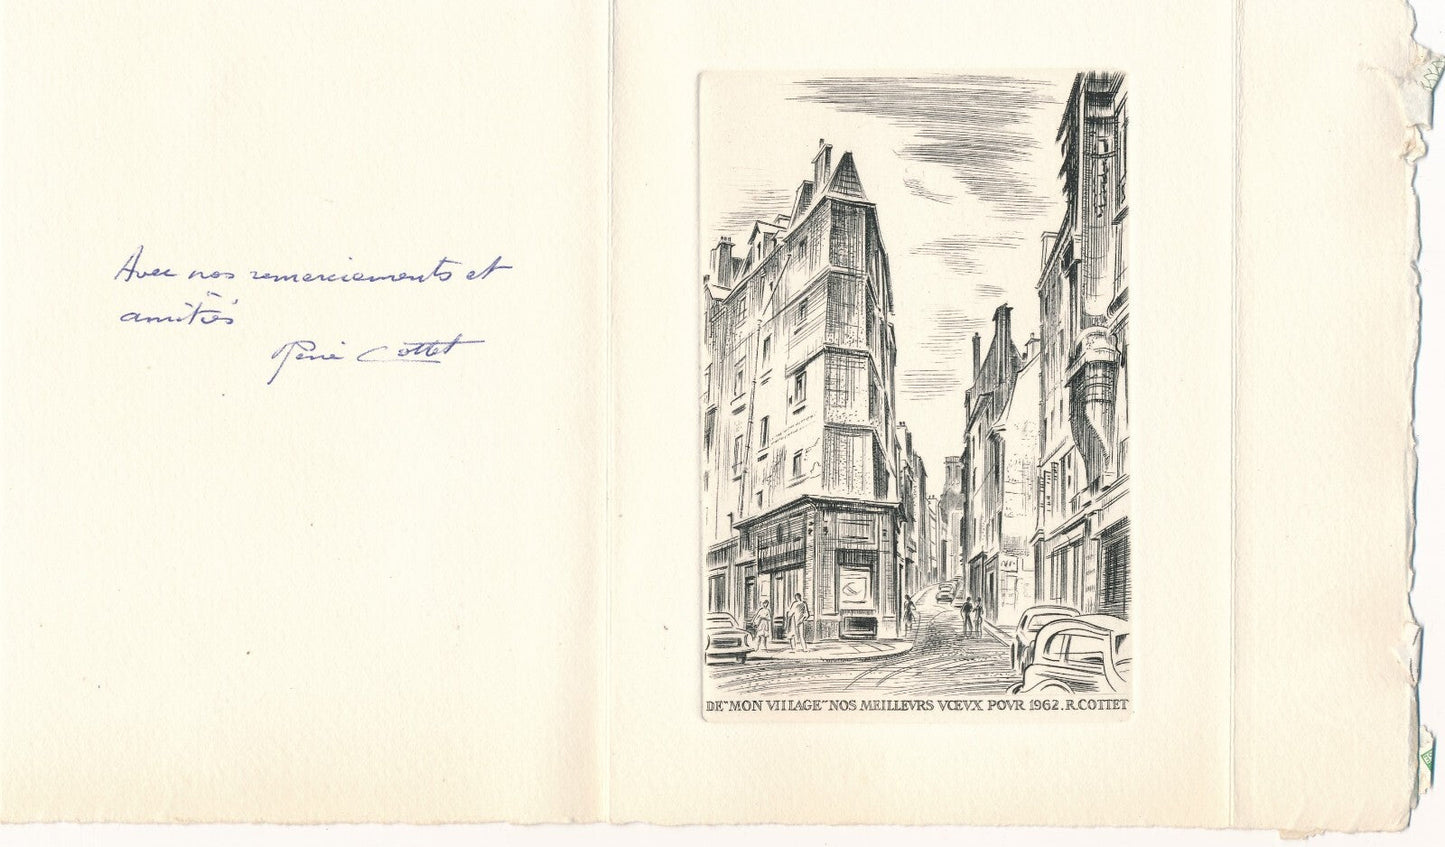 Avec nos remerciements et
amitiés
René Cottet
DE "MON VILLAGE" NOS MEILLEVRS VŒVX POVR 1962. R.COTTET